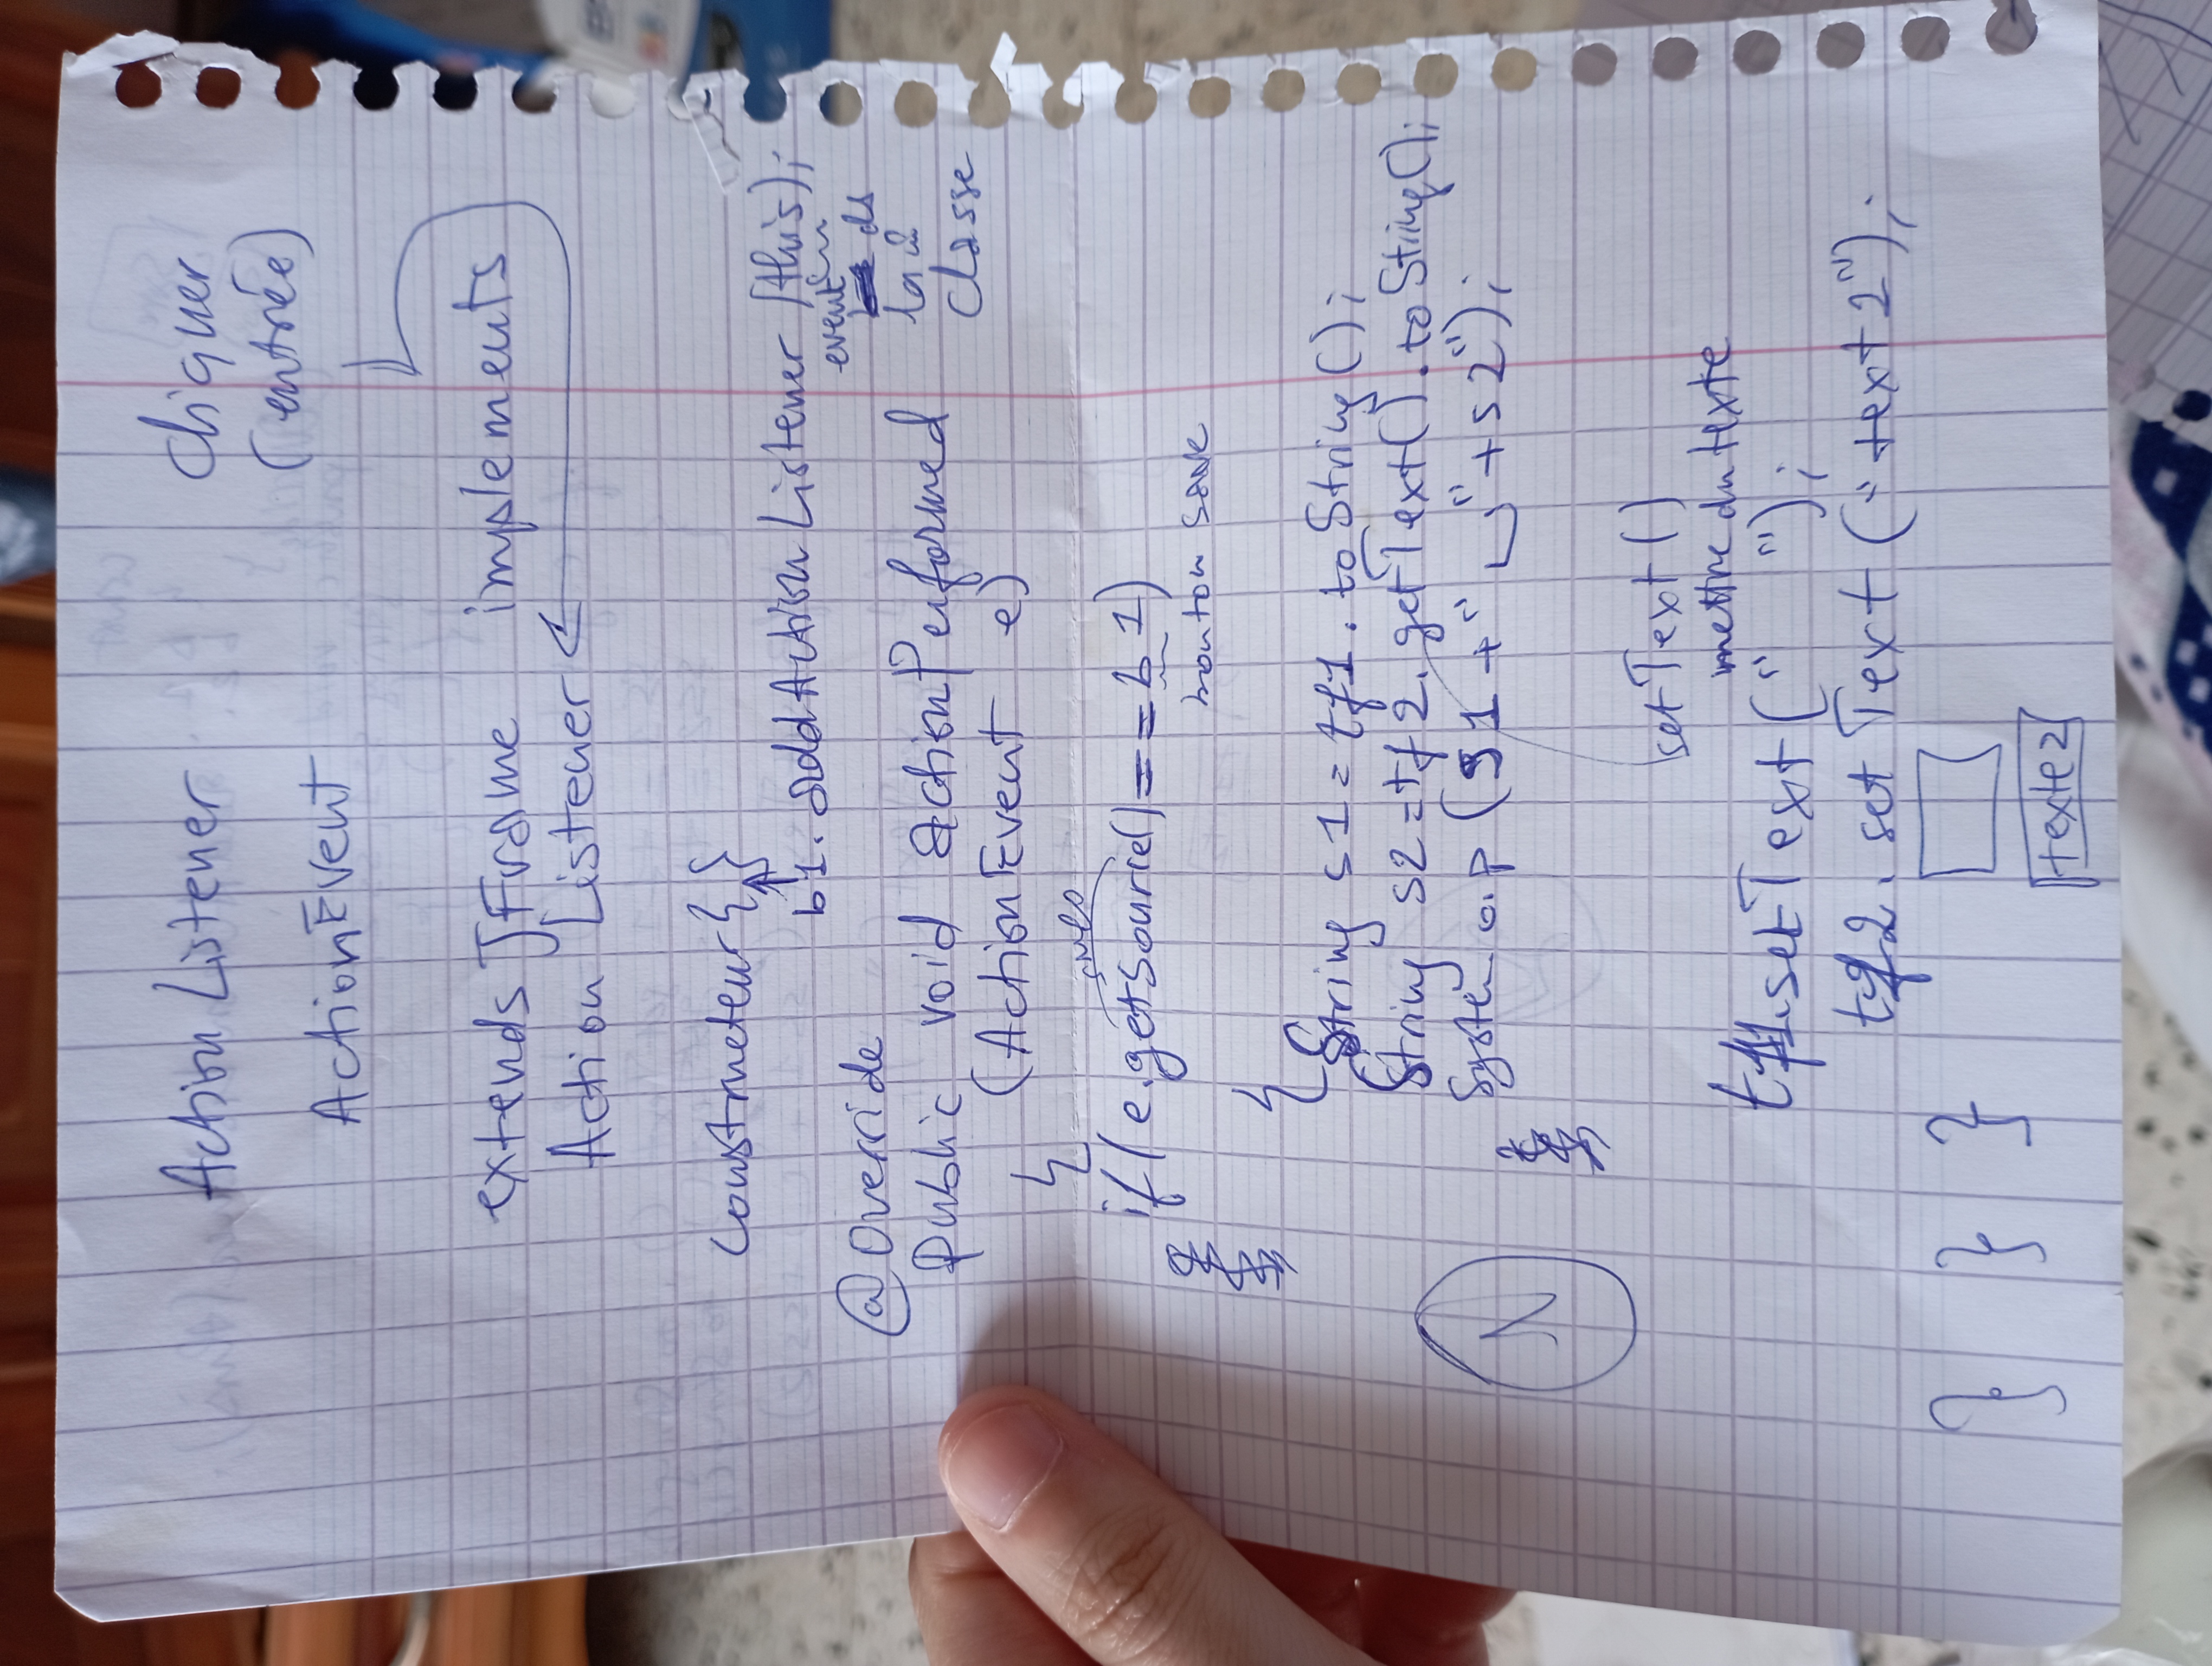 Action Listener
cliquer
(entrée)
ActionEvent
extends JFrame implements
Action Listener
constructeur { }
b1. addActionListener (this);
event
ds
la
classe
@Override
public void actionPerformed
(ActionEvent e)
{
if(e.getSource()==b1)
bouton save
{
String s1 = tf1. toString();
String s2 = tf2. getText(). toString();
System o.p (s1 + " " + s2");
N
setText()
mettre du texte
tf1.setText(" ");
tf2. setText ("text2");
} } }
texte2